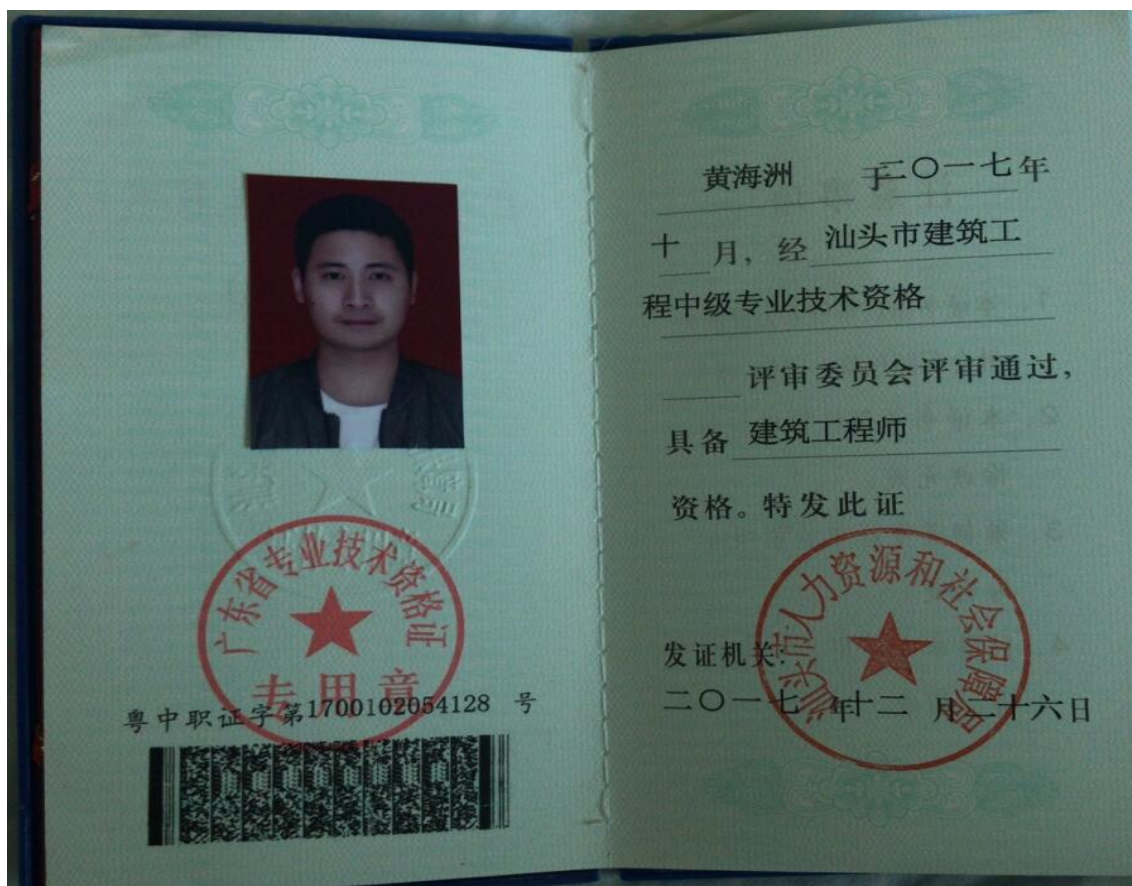 广东省专业技术资格证
专用章
粤中职证字第1700102054128 号
黄海洲 于二〇一七年
十 月，经 汕头市建筑工
程中级专业技术资格
评审委员会评审通过，
具备 建筑工程师
资格。特发此证
汕头市人力资源和社会保障局
发证机关：
二〇一七 年十二 月二十六日